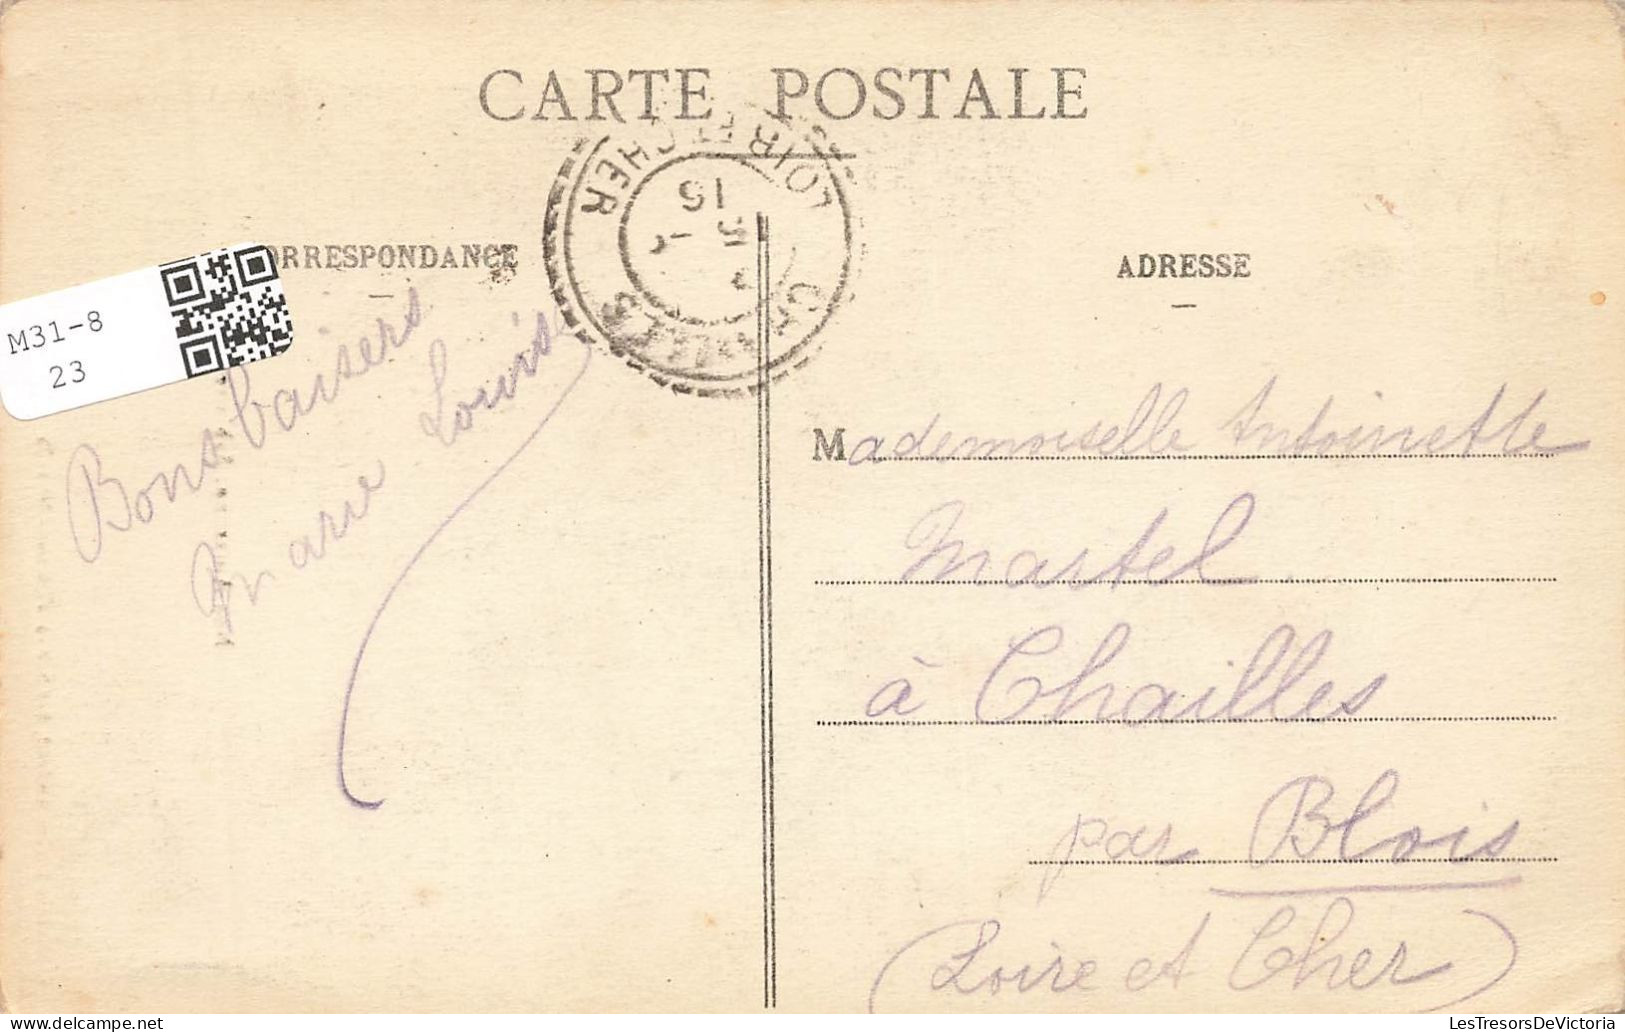 CARTE POSTALE
CORRESPONDANCE
ADRESSE
M31-8
23
LOIR-ET-CHER
16
CHAILLES
Bons baisers
Marie Louise
Mademoiselle Antoinette
Martel
à Chailles
par Blois
(Loire et Cher)
LesTresorsDeVictoria